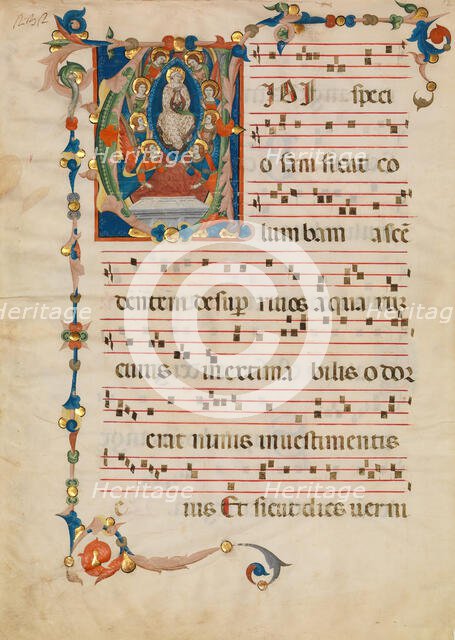 VIDI speci
Heritage Heritage
osam sicut co
lumbam ascē
dentem desup rivos aquarum
Heritage © Heritage
cuius inextima bilis odor
erat nimis in vestimentis
Heritage Heritage
e ius Et sicut dies verni